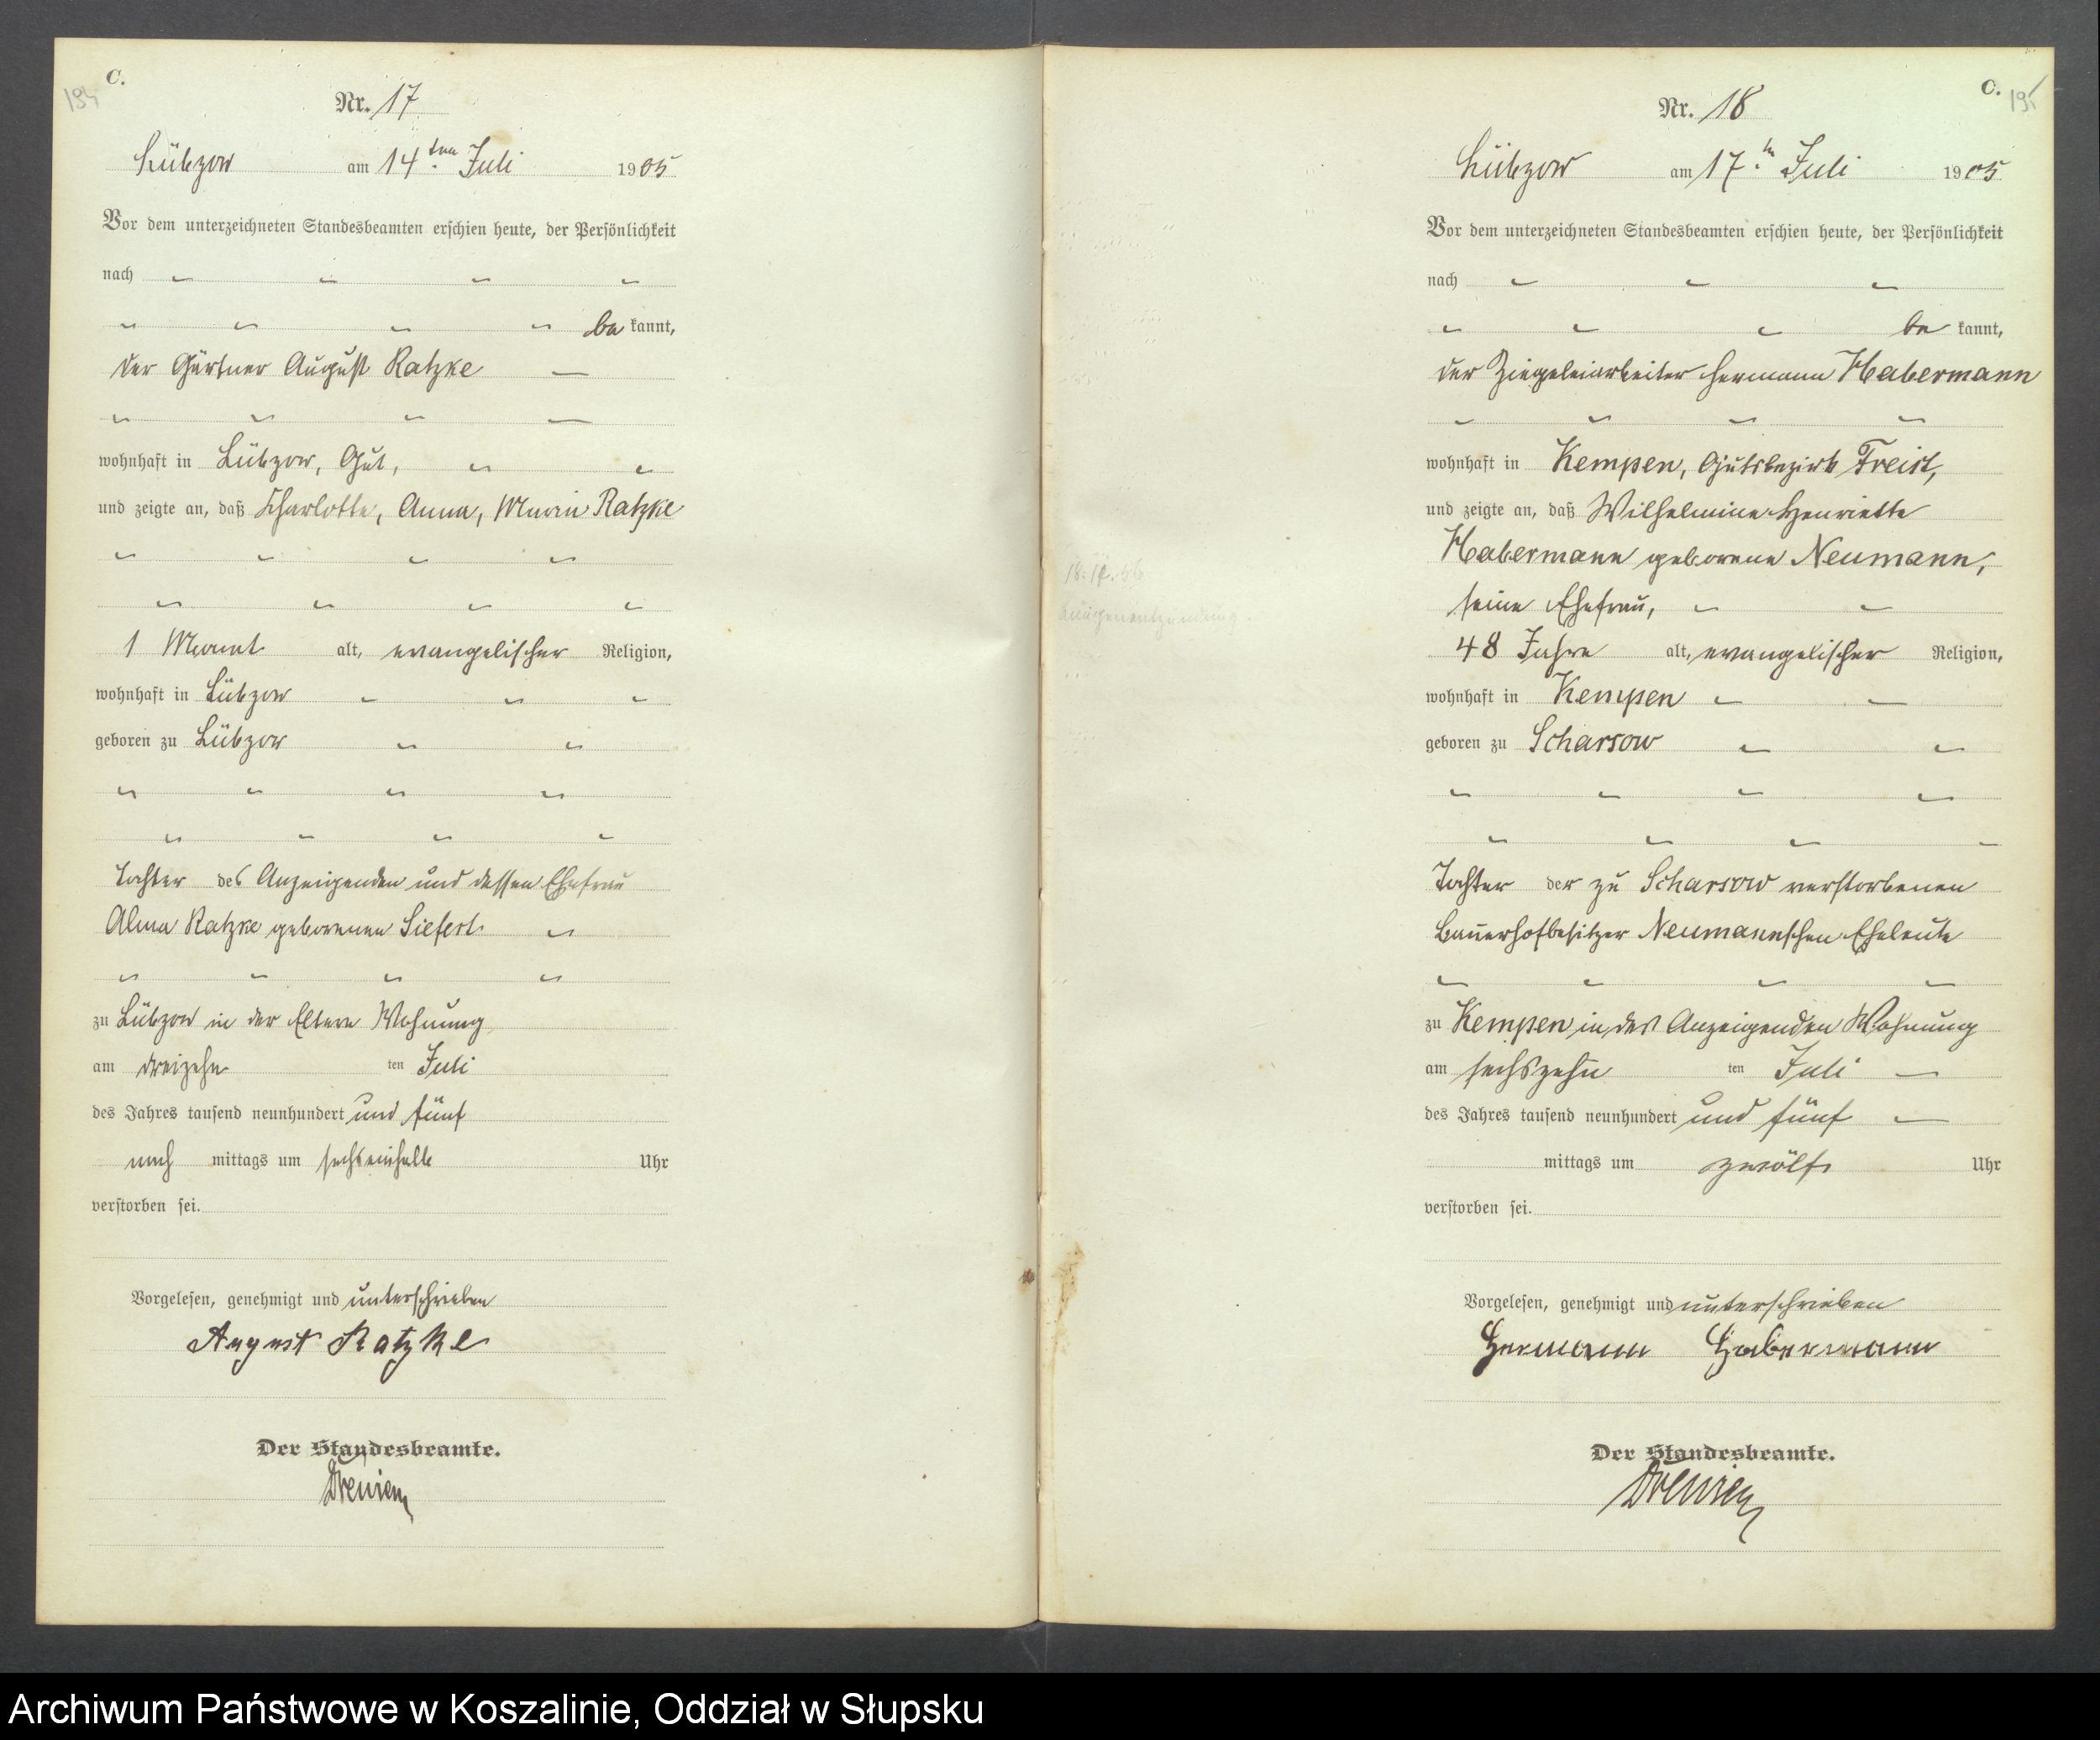 C.
194
Nr. 17
Lübzow am 14ten Juli 1905
Vor dem unterzeichneten Standesbeamten erschien heute, der Persönlichkeit
nach
be kannt,
der Gärtner August Ratzke
wohnhaft in Lübzow, Gut,
und zeigte an, daß Charlotte, Anna, Marie Ratzke
1 Monat alt, evangelischer Religion,
wohnhaft in Lübzow
geboren zu Lübzow
Tochter des Anzeigenden und dessen Ehefrau
Alma Ratzke geborenen Siefert
zu Lübzow in der Eltern Wohnung
am dreizehn ten Juli
des Jahres tausend neunhundert und fünf
nach mittags um sechseinhalb Uhr
verstorben sei.
Vorgelesen, genehmigt und unterschrieben
August Ratzke
Der Standesbeamte.
C.
195
Nr. 18
Lübzow am 17.ten Juli 1905
Vor dem unterzeichneten Standesbeamten erschien heute, der Persönlichkeit
nach
be kannt,
der Ziegeleiarbeiter Hermann Habermann
wohnhaft in Kempen, Gutsbezirk Freist,
und zeigte an, daß Wilhelmine Henriette
Habermann geborene Neumann,
seine Ehefrau,
48 Jahre alt, evangelischer Religion,
wohnhaft in Kempen
geboren zu Scharsow
Tochter der zu Scharsow verstorbenen
Bauerhofbesitzer Neumannschen Eheleute
zu Kempen in des Anzeigenden Wohnung
am sechszehn ten Juli
des Jahres tausend neunhundert und fünf
mittags um zwölf Uhr
verstorben sei.
Vorgelesen, genehmigt und unterschrieben
Hermann Habermann
Der Standesbeamte.
Archiwum Państwowe w Koszalinie, Oddział w Słupsku